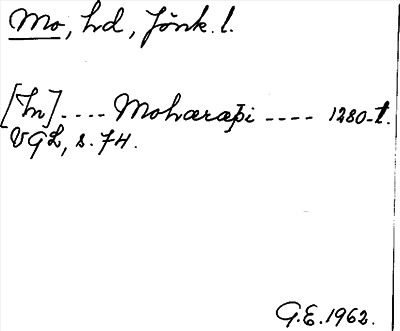 Mo, hd, Jönk. l.
[In] .... Mohæræþi ---- 1280-t.
VGL, s. 74.
G.E. 1962.